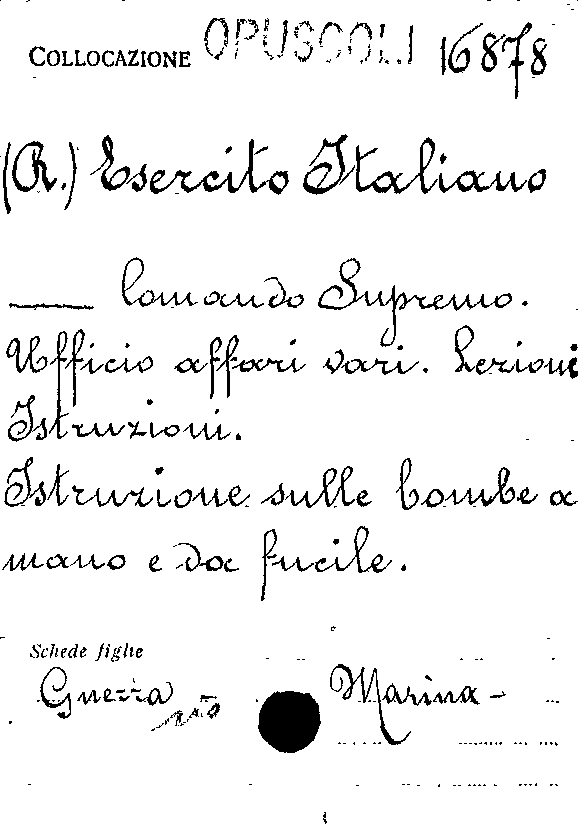 COLLOCAZIONE OPUSCOLI 16878
(R.) Esercito Italiano
____ Comando Supremo.
Ufficio affari vari. Sezione
Istruzioni.
Istruzione sulle bombe a
mano e da fucile.
Schede figlie
Guerra Marina -